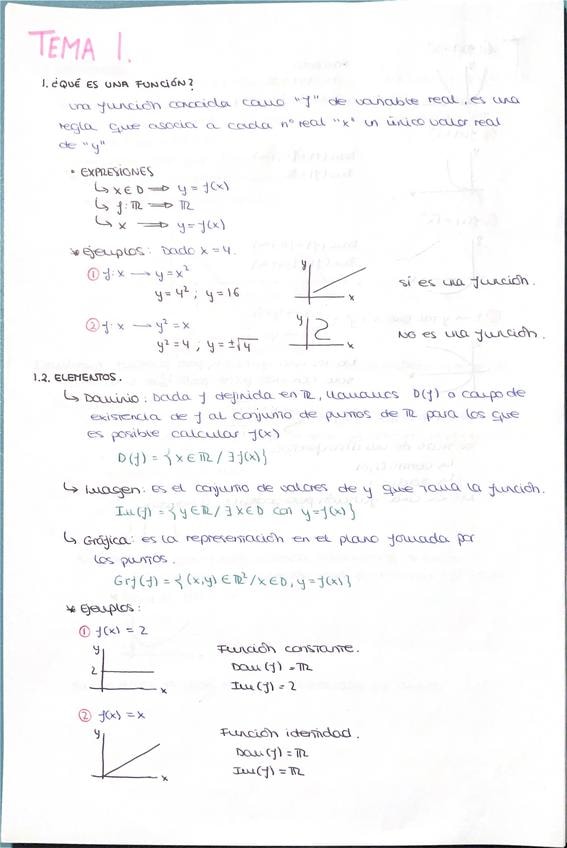 TEMA 1.
1. ¿QUÉ ES UNA FUNCIÓN?
Una función conocida como "f" de variable real, es una
regla que asocia a cada nº real "x" un único valor real
de "y"
• EXPRESIONES
↳ x ∈ D ⟹ y = f(x)
↳ f: ℝ ⟹ ℝ
↳ x ⟹ y = f(x)
* Ejemplos: Dado x = 4.
① f: x → y = x²
y = 4² ; y = 16
y
x
Sí es una función.
② f: x → y² = x
y² = 4 ; y = ±√4
y
x
NO es una función.
1.2. ELEMENTOS.
↳ Dominio: Dada f definida en ℝ, llamamos D(f) o campo de
existencia de f al conjunto de puntos de ℝ para los que
es posible calcular f(x)
D(f) = { x ∈ ℝ / ∃ f(x) }
↳ Imagen: es el conjunto de valores de y que toma la función.
Im(f) = { y ∈ ℝ / ∃ x ∈ D con y = f(x) }
↳ Gráfica: es la representación en el plano formada por
los puntos.
Grf(f) = { (x,y) ∈ ℝ² / x ∈ D, y = f(x) }
* Ejemplos:
① f(x) = 2
y
2
x
Función constante.
Dom(f) = ℝ
Im(f) = 2
② f(x) = x
y
x
Función identidad.
Dom(f) = ℝ
Im(f) = ℝ